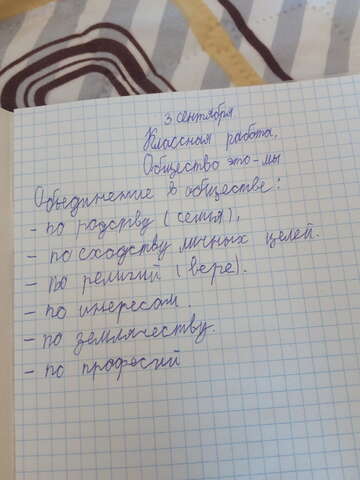 3 сентября
Классная работа.
Общество это-мы
Объединение в обществе:
- по родству (семья),
- по сходству личных целей.
- по религий (вере).
- по инересам.
- по землячеству.
- по професий